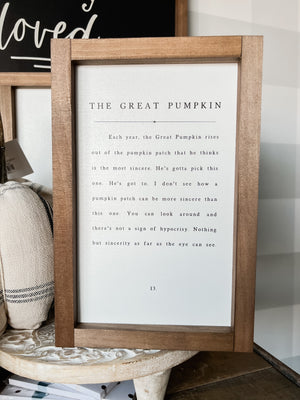 loved
THE GREAT PUMPKIN
Each year, the Great Pumpkin rises
out of the pumpkin patch that he thinks
is the most sincere. He's gotta pick this
one. He's got to. I don't see how a
pumpkin patch can be more sincere than
this one. You can look around and
there's not a sign of hypocrisy. Nothing
but sincerity as far as the eye can see.
13